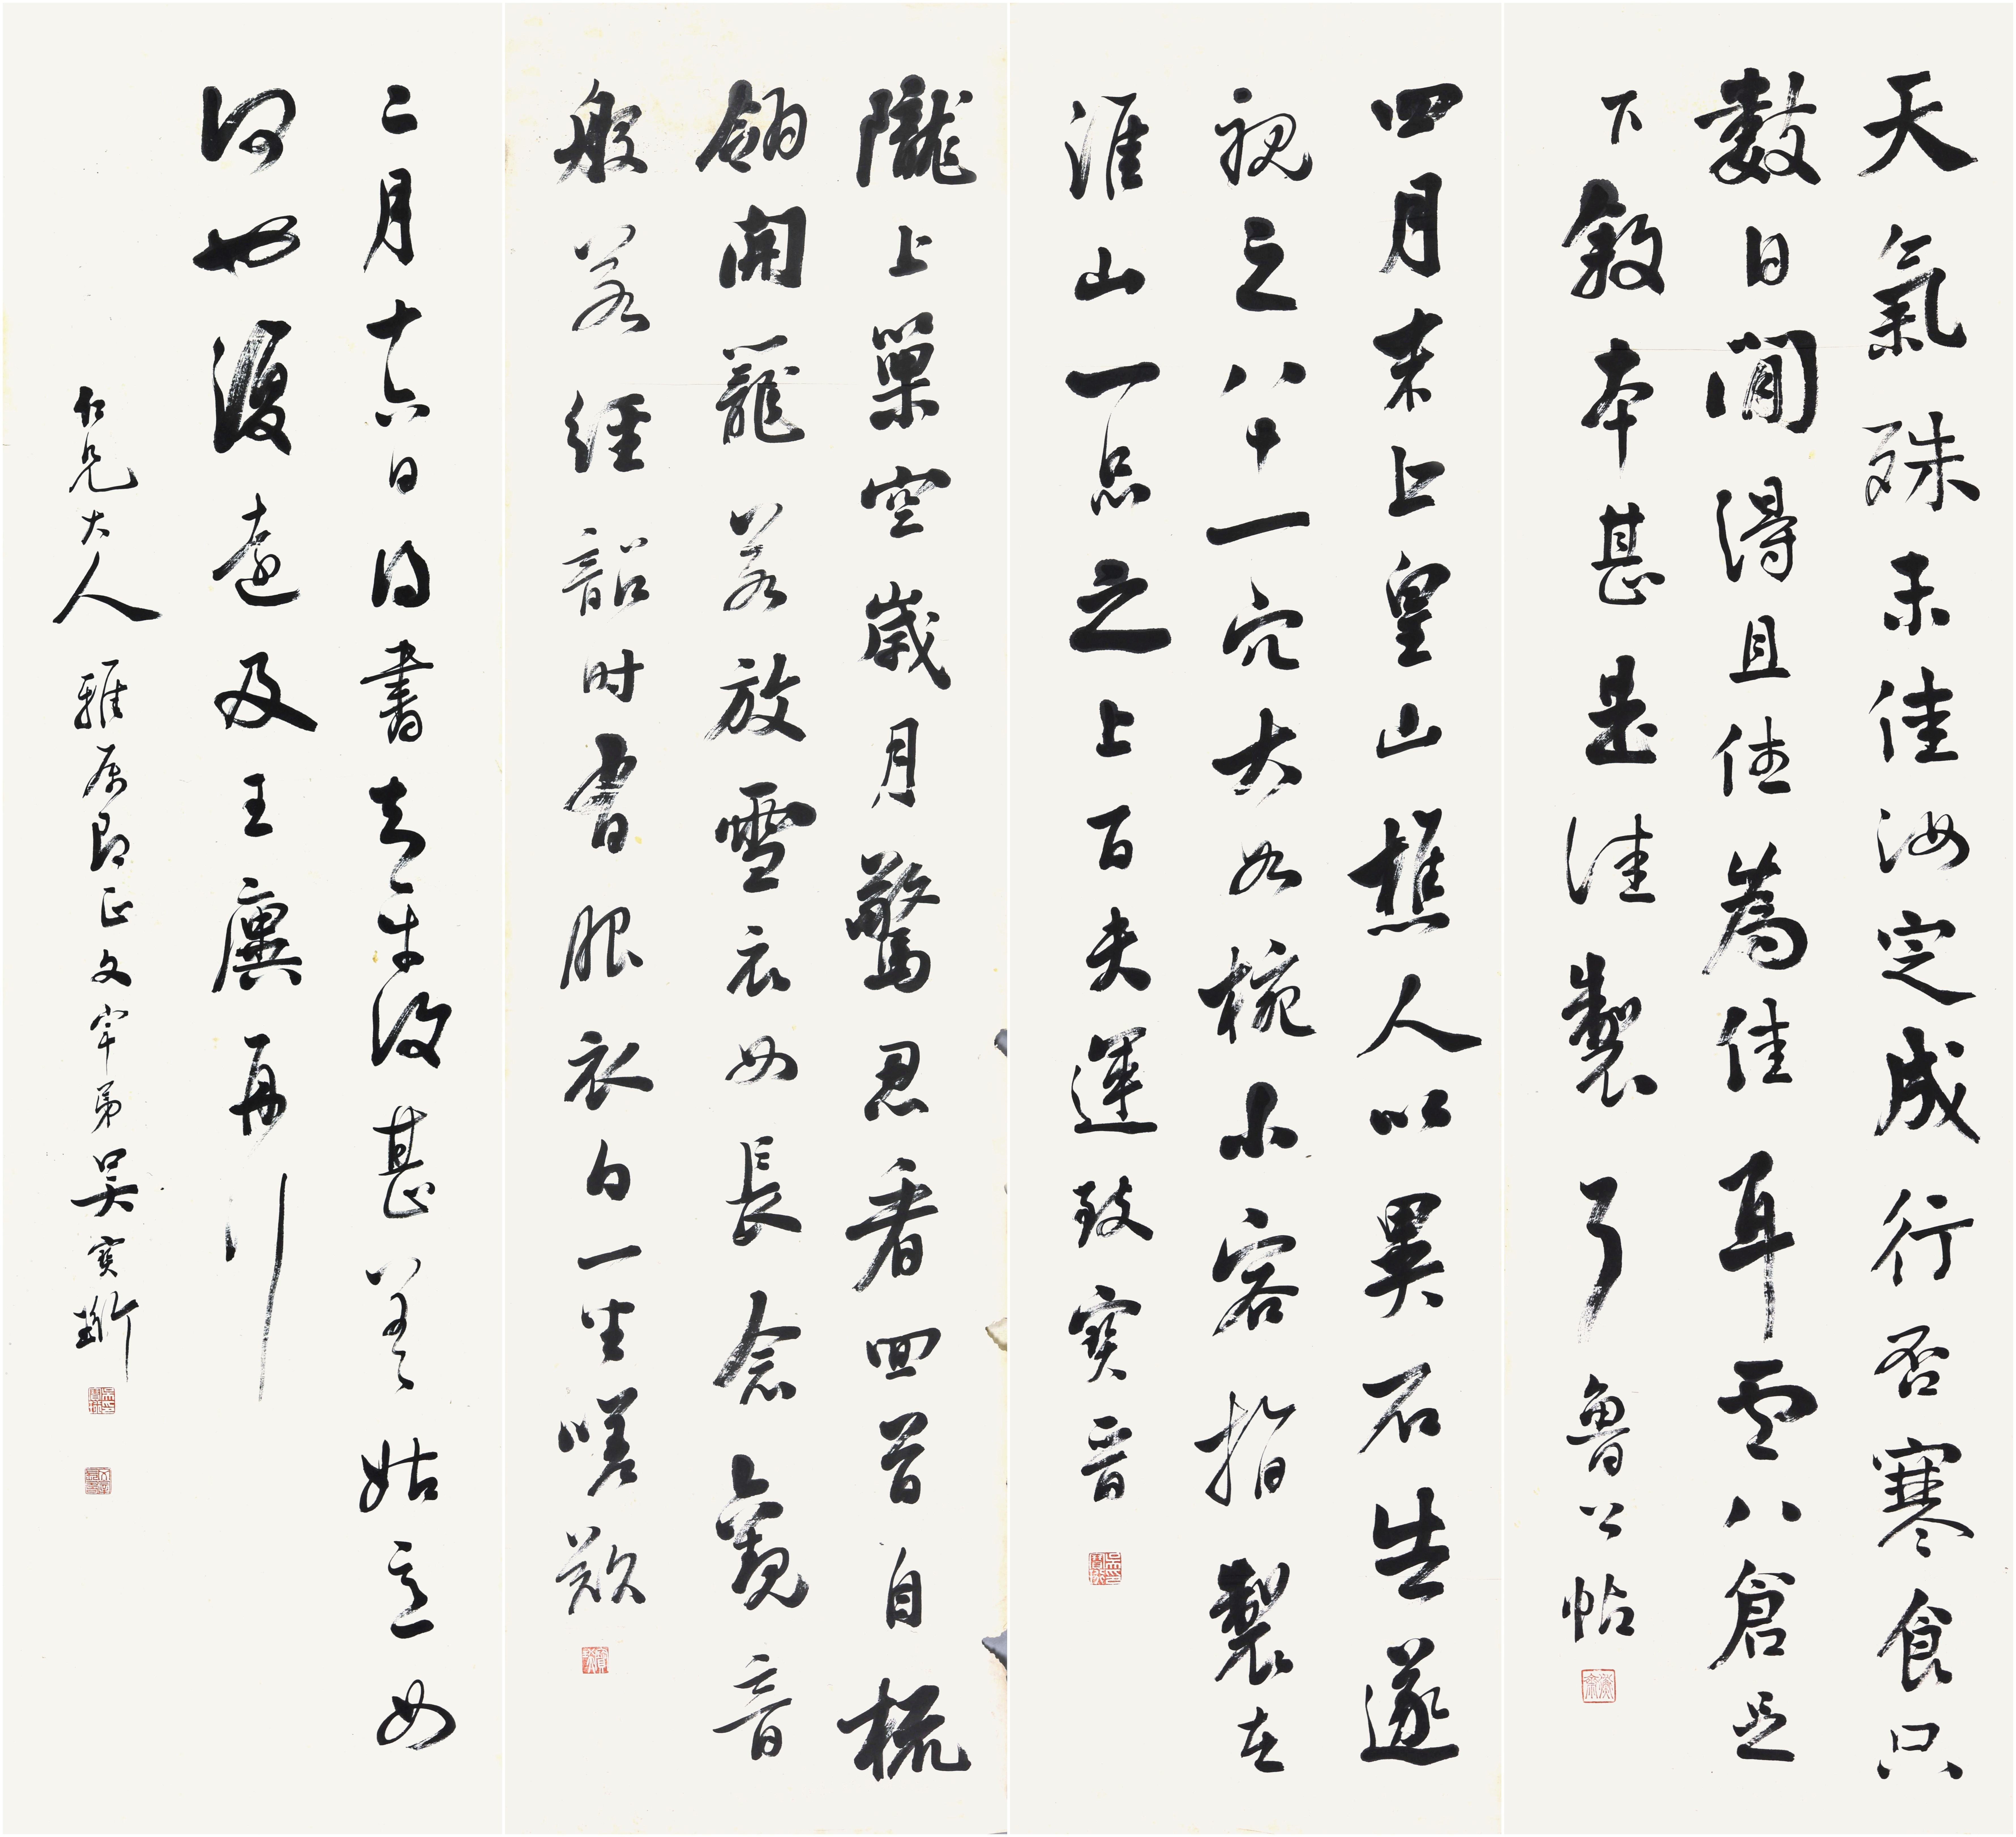 天氣殊未佳汝定成行否寒食只
數日間得且住為佳耳雪八倉足
下敘本甚是佳製了魯公帖
四月末上皇山樵人以異石告遂
視之八十一穴大如椀小容指製在
淮山一品之上百夫運致寶晉
隴上巢空歲月驚忍看回首自梳
翎開籠若放雪衣女長念觀音
般若經韶時有服衣白一坐嗟歎
二月十六日得書甚姑意如
何也復遠及王廙再行
仁兄大人雅屬即正文宇弟吳寶